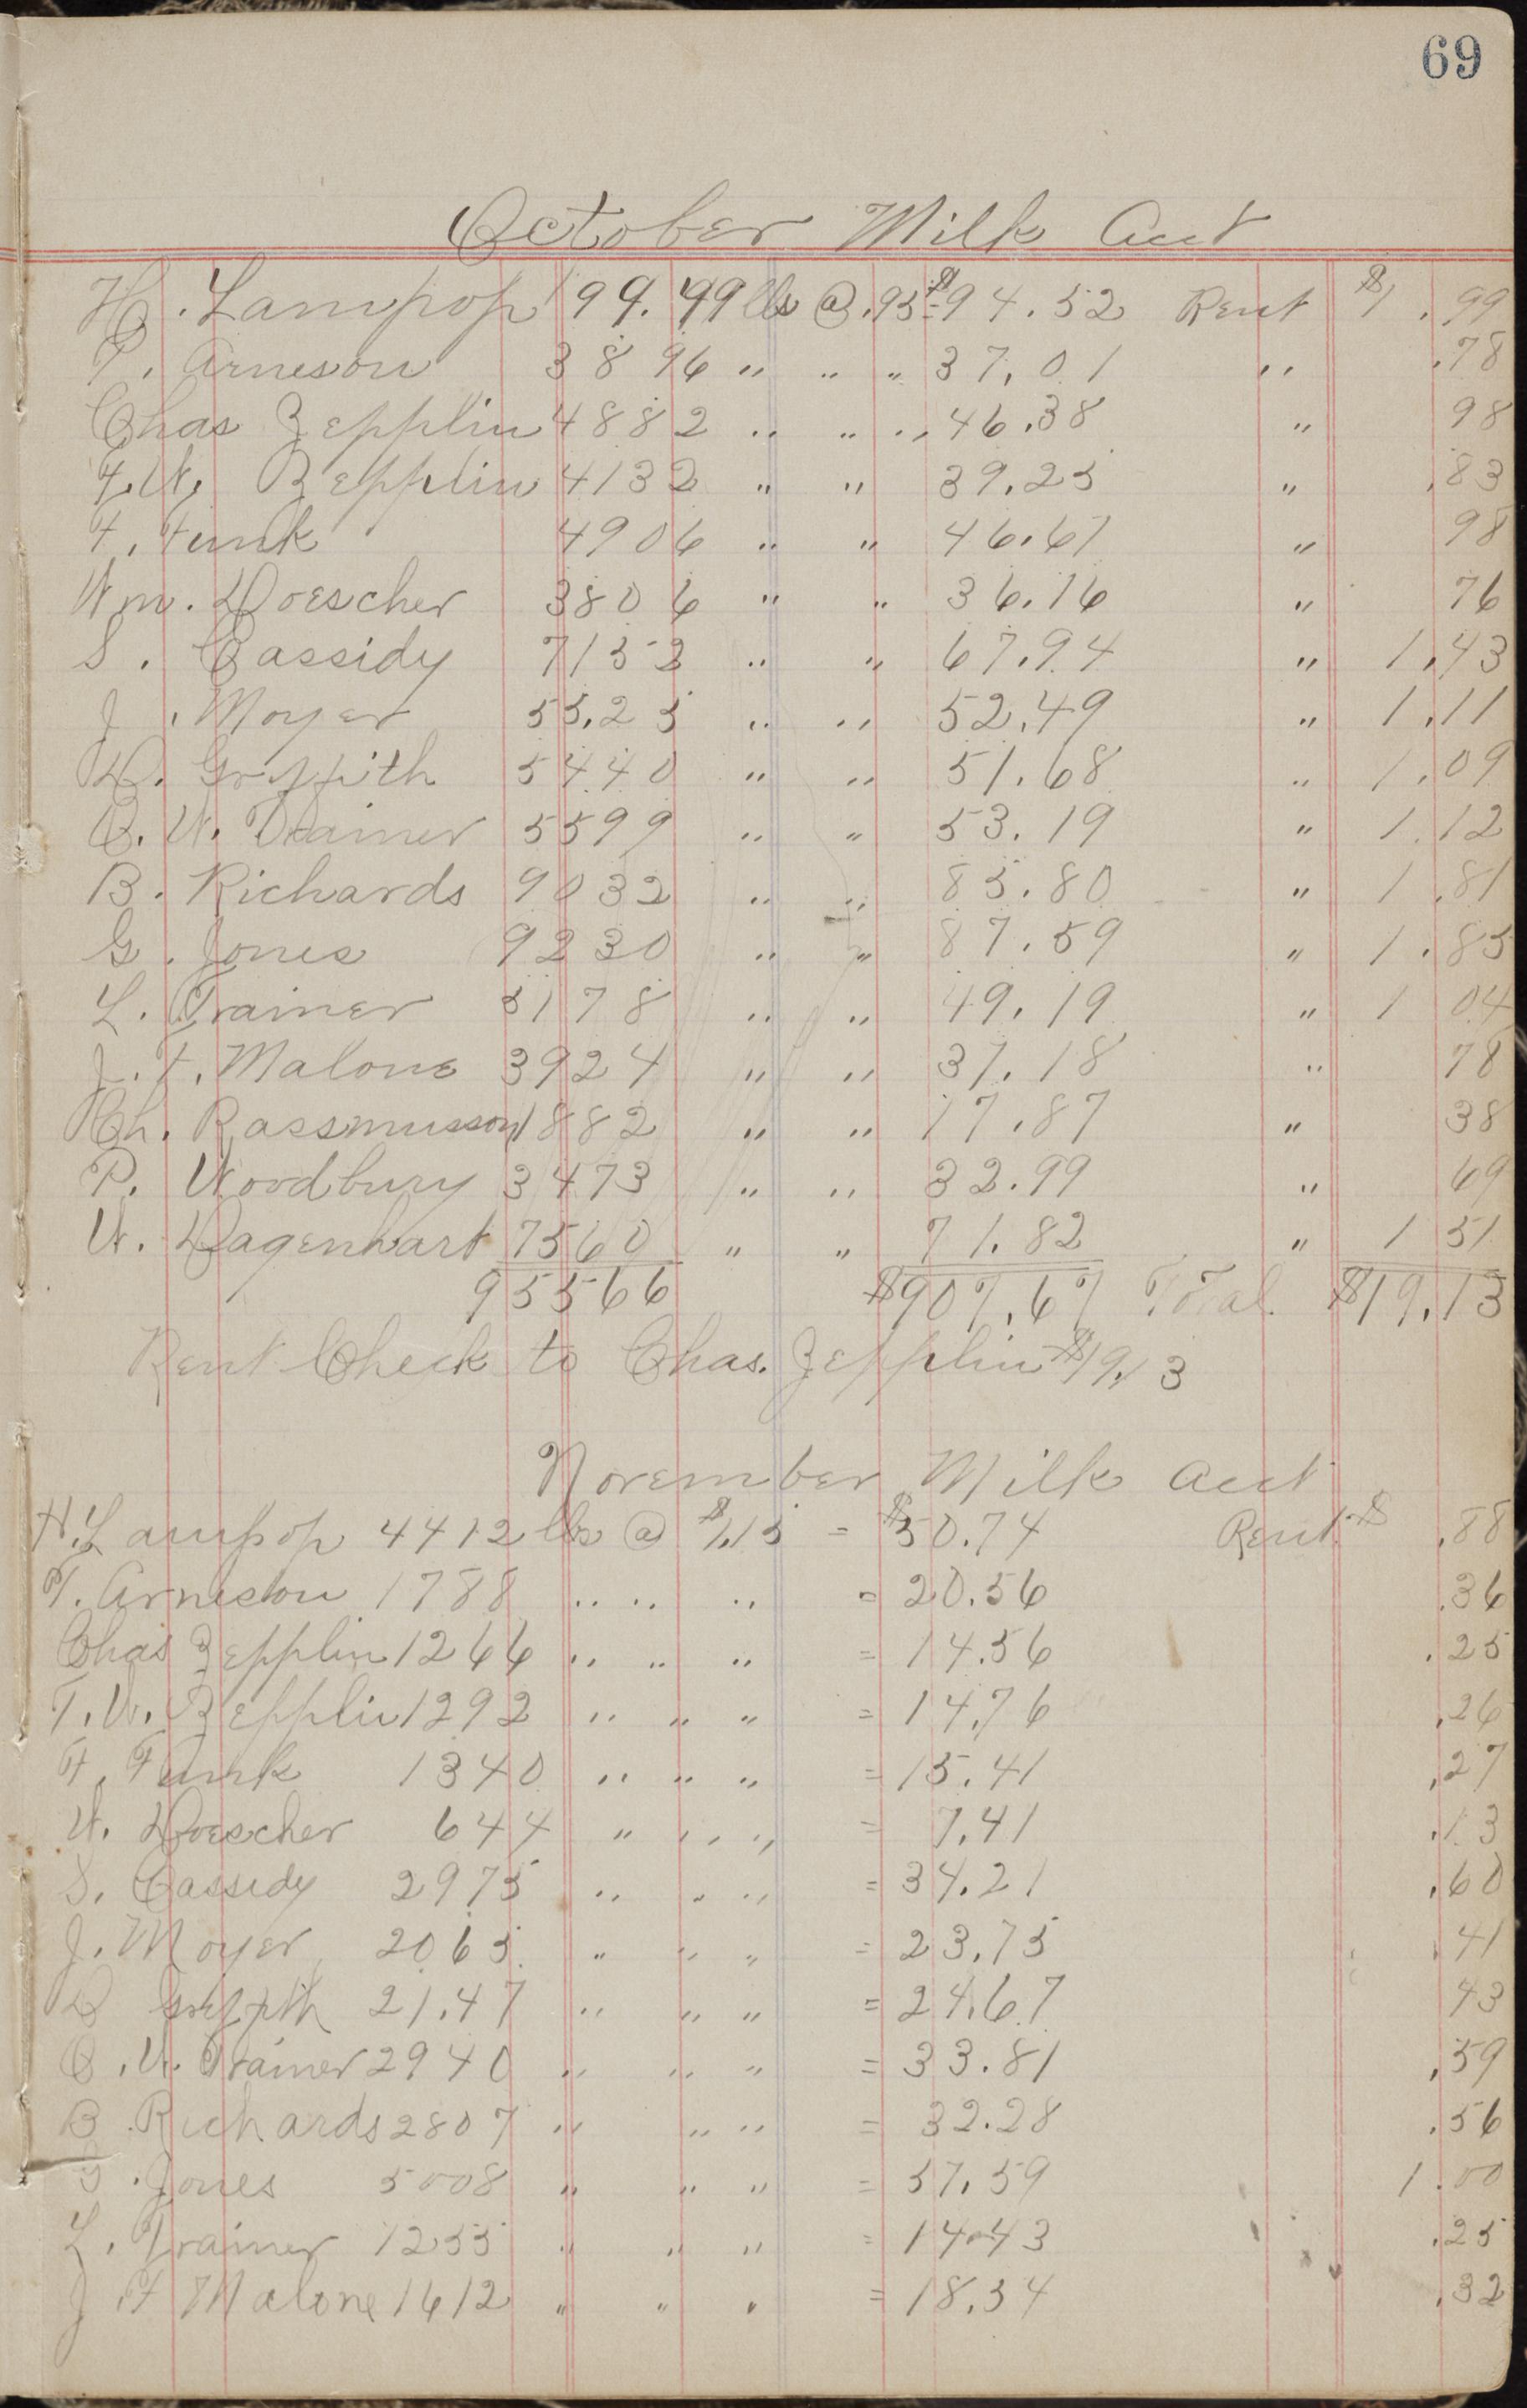 69
October Milk Acct
H. Lampop 99.49 lbs @ .95 = $94.52 Rent $1.99
T. Arneson 3896 " " " 37.01 " .78
Chas Zepplin 4882 " " " 46.38 " 98
T.W. Zepplin 4132 " " 39.25 " .83
F. Funk 4906 " " 46.61 " 98
Wm. Doescher 3806 " " 36.16 " 76
S. Cassidy 7152 " " 67.94 " 1.43
J. Moyer 55.25 " " 52.49 " 1.11
D. Griffith 5440 " " 51.68 " 1.09
O. W. Trainer 5599 " " 53.19 " 1.12
B. Richards 9032 " " 85.80 " 1.81
G. Jones 9230 " " 87.59 " 1.85
L. Trainer 5178 " " 49.19 " 1 04
J. F. Malone 3924 " " 37.18 " 78
Ch. Rassmusson 1882 " " 17.87 " 38
P. Woodbury 3473 " " 32.99 " 69
W. Dagenhart 7560 " " 71.82 " 1 51
95566 $907.67 Total $19.13
Rent Check to Chas. Zepplin $19.13
November Milk Acct
H. Lampop 4412 lbs @ $1.15 = $50.74 Rent $ .88
T. Arneson 1788 " " " = 20.56 .36
Chas Zepplin 1266 " " " = 14.56 .25
T. W. Zepplin 1292 " " " = 14.76 .26
F. Funk 1340 " " " = 15.41 .27
W. Doescher 644 " " " = 7.41 .13
S. Cassidy 2975 " " " = 34.21 .60
J. Moyer 2065 " " " = 23.75 .41
D Griffith 21.47 " " " = 24.67 43
O. W. Trainer 2940 " " " = 33.81 .59
B. Richards 2807 " " " = 32.28 .56
G. Jones 5008 " " " = 57.59 1.00
L. Trainer 1255 " " " = 14.43 .25
J. F Malone 1612 " " " = 18.54 .32